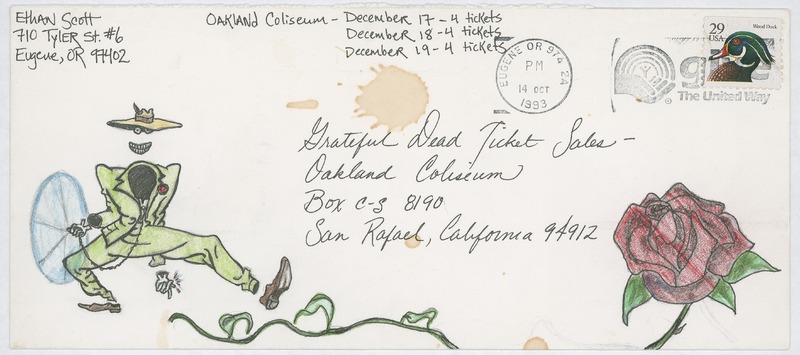 Ethan Scott
710 Tyler St. #6
Eugene, OR 97402
Oakland Coliseum - December 17 - 4 tickets
December 18 - 4 tickets
December 19 - 4 tickets
EUGENE OR 974 2A
PM
14 OCT
1993
29
USA
Wood Duck
The United Way
Grateful Dead Ticket Sales -
Oakland Coliseum
Box C-S 8190
San Rafael, California 94912